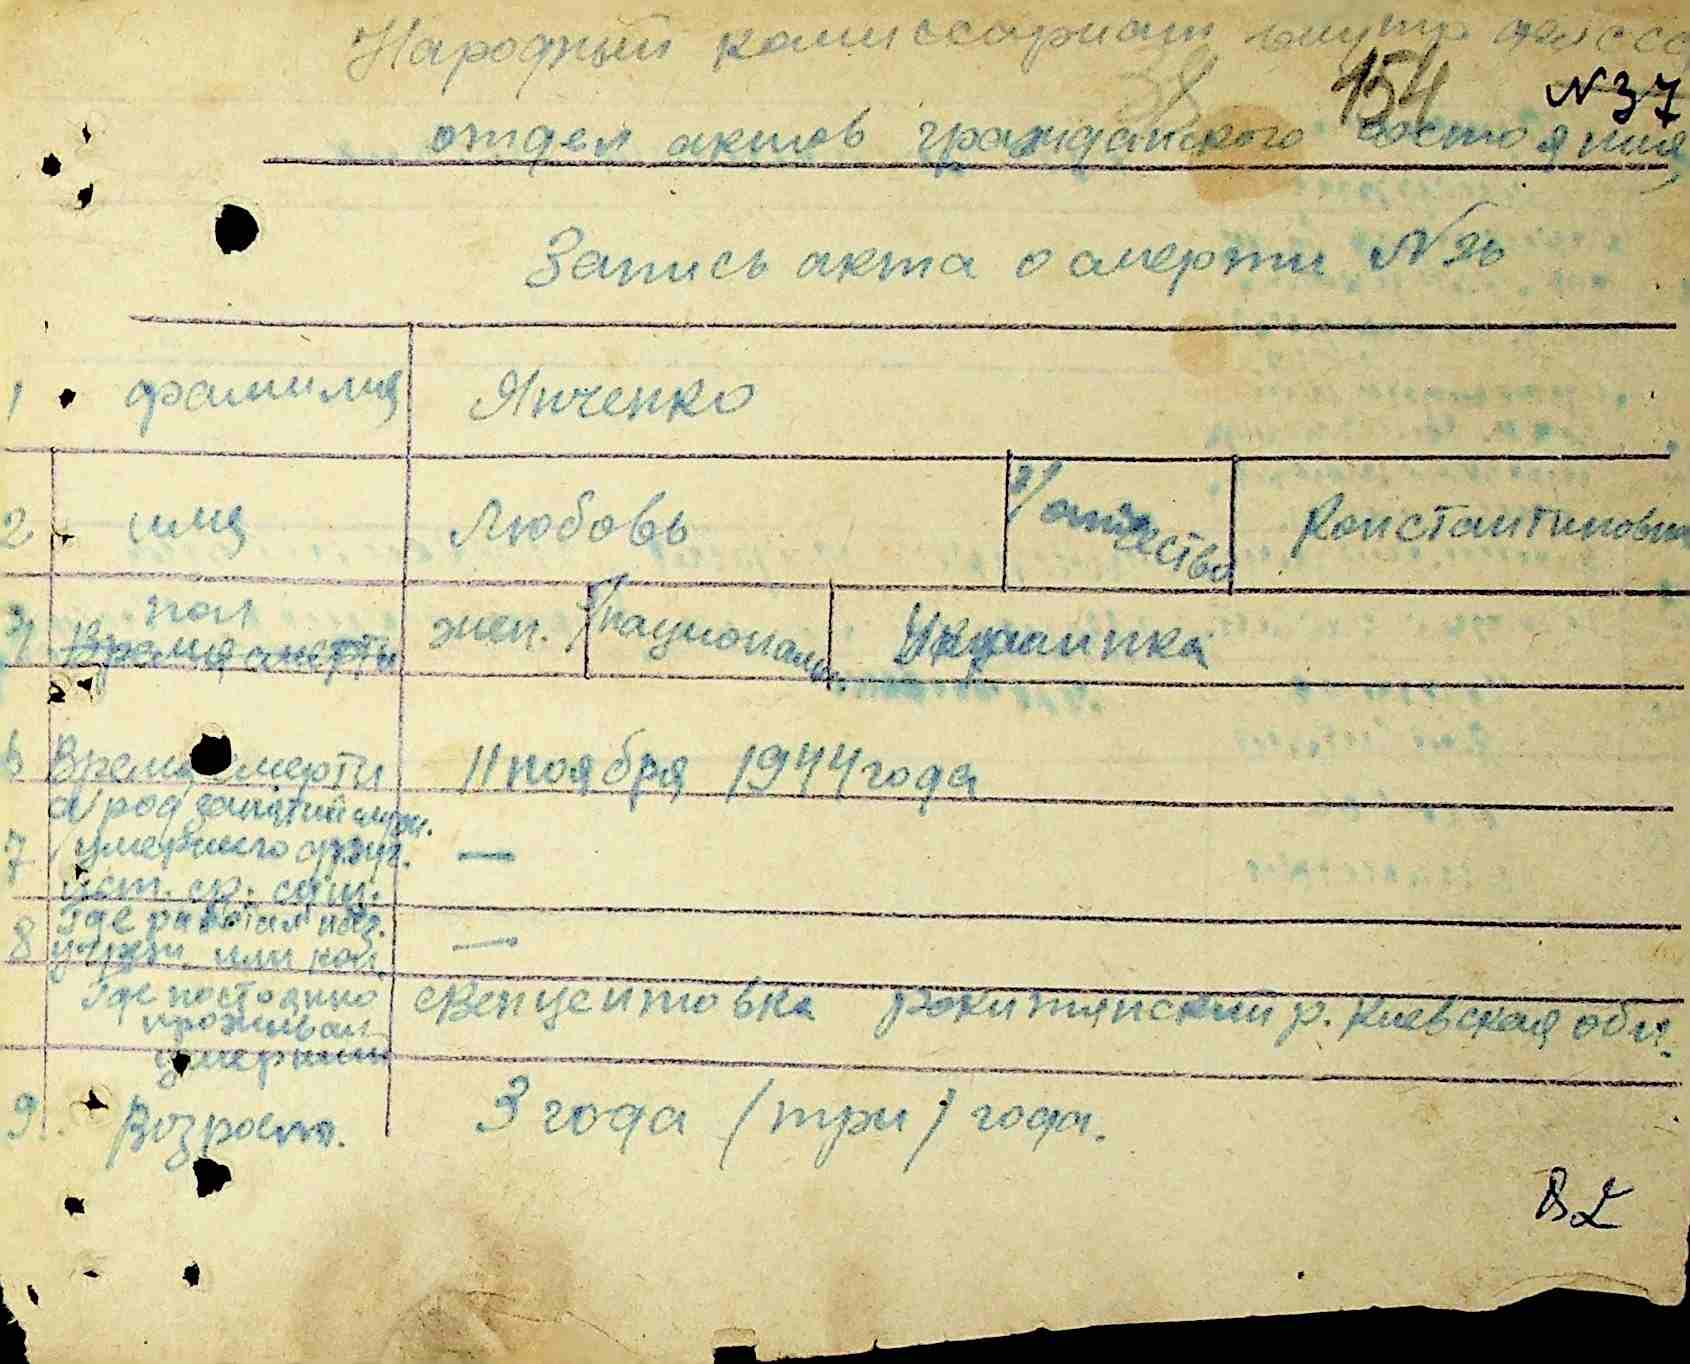 Народный комиссариат внутр дел ссс
154 №37
отдел актов гражданского состояния
Запись акта о смерти №26
1 фамилия Янченко
2 имя Любовь 3/ отчество Константиновна
3/ пол жен. 5/ националь. Украинка
Время смерти
6 Время смерти 11 ноября 1944 года
а/ род занятий
7 умершего
8 Где работал наз.
учреж. или
Где постоянно Рокитянский р. Киевская обл.
проживал
умерший
9. Возраст. 3 года (три) года.